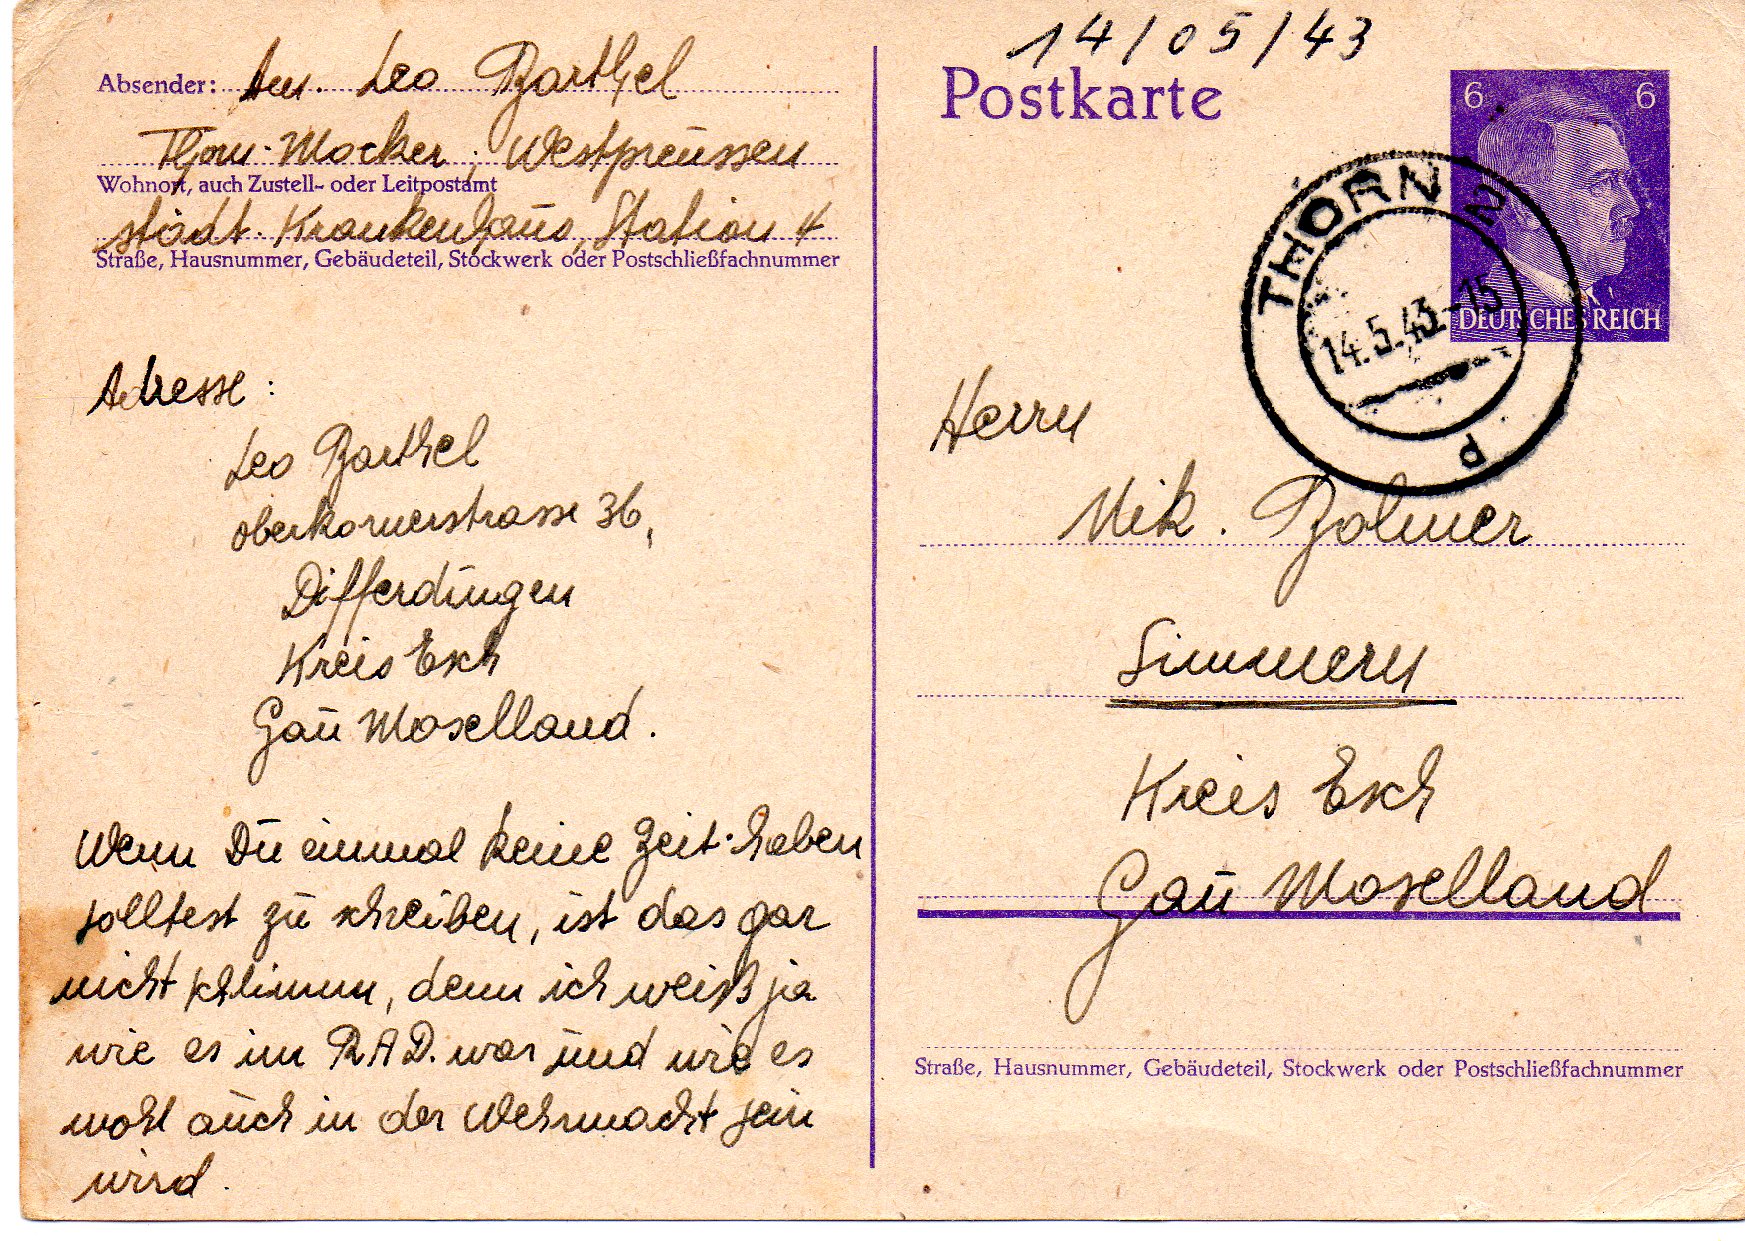 14/05/43
Absender: Am. Leo Barthel
Thorn-Mocker, Westpreussen
Wohnort, auch Zustell- oder Leitpostamt
städt. Krankenhaus, Station 4
Straße, Hausnummer, Gebäudeteil, Stockwerk oder Postschließfachnummer
Adresse:
Leo Barthel
Oberkornerstrasse 36,
Differdingen
Kreis Esch
Gau Moselland.
Wenn Du einmal keine Zeit haben
solltest zu schreiben, ist das gar
nicht schlimm, denn ich weiß ja
wie es im RAD. war und wie es
wohl auch in der Wehrmacht sein
wird.
Postkarte
6 6
DEUTSCHES REICH
THORN 2
14.5.43.-15
P
Herrn
Nik. Bolmer
Simmern
Kreis Esch
Gau Moselland
Straße, Hausnummer, Gebäudeteil, Stockwerk oder Postschließfachnummer